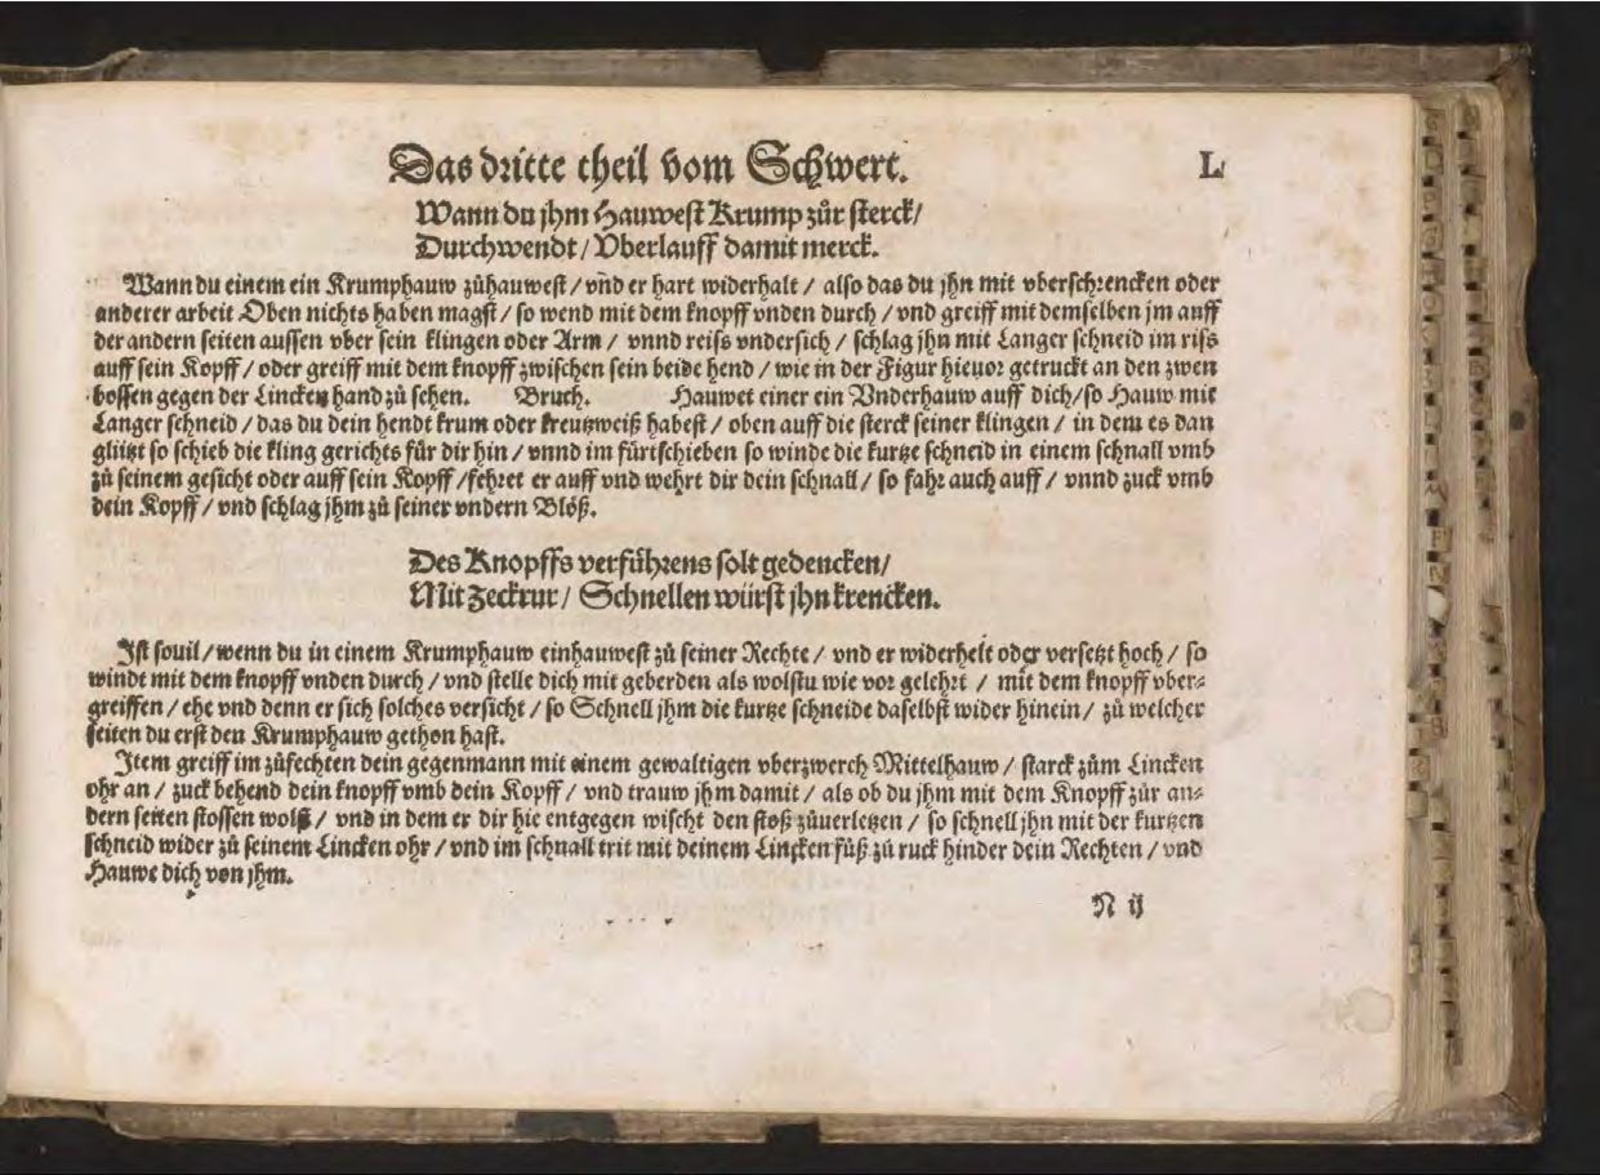 Das dritte theil vom Schwert. L
Wann du jhm Hauwest Krump zůr sterck/
Durchwendt / Vberlauff damit merck.
Wann du einem ein Krumphauw zůhauwest / vñd er hart widerhalt / also das du jhn mit vberschrencken oder
anderer arbeit Oben nichts haben magst / so wend mit dem knopff vnden durch / vnd greiff mit demselben jm auff
der andern seiten aussen vber sein klingen oder Arm / vnnd reiss vndersich / schlag jhn mit Langer schneid im riss
auff sein Kopff / oder greiff mit dem knopff zwischen sein beide hend / wie in der Figur hieuor getruckt an den zwen
bossen gegen der Lincken hand zů sehen. Bruch. Hauwet einer ein Vnderhauw auff dich/so Hauw mit
Langer schneid / das du dein hendt krum oder kreutzweiß habest / oben auff die sterck seiner klingen / in dem es dan
glitzt so schieb die kling gerichts für dir hin / vnnd im fürtschieben so winde die kurtze schneid in einem schnall vmb
zů seinem gesicht oder auff sein Kopff /fehret er auff vnd wehrt dir dein schnall / so fahr auch auff / vnnd zuck vmb
dein Kopff / vnd schlag jhm zů seiner vndern Blöß.
Des Knopffs verführens solt gedencken/
Mit Zeckrur / Schnellen würst jhn krencken.
Ist souil / wenn du in einem Krumphauw einhauwest zů seiner Rechte / vnd er widerhelt oder versetzt hoch / so
windt mit dem knopff vnden durch / vnd stelle dich mit geberden als wolstu wie vor gelehrt / mit dem knopff vber⸗
greiffen / ehe vnd denn er sich solches versicht / so Schnell jhm die kurtze schneide daselbst wider hinein / zů welcher
seiten du erst den Krumphauw gethon hast.
Item greiff im zůfechten dein gegenmann mit einem gewaltigen vberzwerch Mittelhauw / starck zům Lincken
ohr an / zuck behend dein knopff vmb dein Kopff / vnd trauw jhm damit / als ob du jhm mit dem Knopff zůr an⸗
dern seiten stossen wolst / vnd in dem er dir hie entgegen wischt den stoß zůuerletzen / so schnell jhn mit der kurtzen
schneid wider zů seinem Lincken ohr / vnd im schnall trit mit deinem Lincken fůß zů ruck hinder dein Rechten / vnd
Hauwe dich von jhm.
N ij